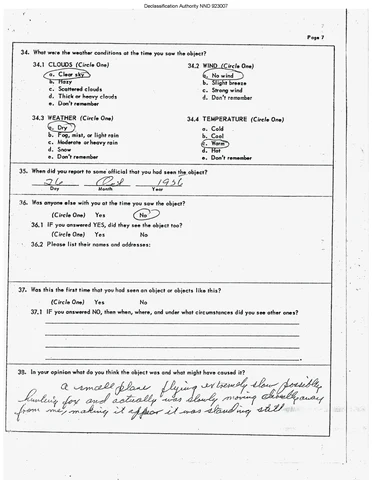 Declassification Authority NND 923007
Page 7
34. What were the weather conditions at the time you saw the object?
34.1 CLOUDS (Circle One) 34.2 WIND (Circle One)
a. Clear sky a. No wind
b. Hazy b. Slight breeze
c. Scattered clouds c. Strong wind
d. Thick or heavy clouds d. Don't remember
e. Don't remember
34.3 WEATHER (Circle One) 34.4 TEMPERATURE (Circle One)
a. Dry a. Cold
b. Fog, mist, or light rain b. Cool
c. Moderate or heavy rain c. Warm
d. Snow d. Hot
e. Don't remember e. Don't remember
35. When did you report to some official that you had seen the object?
26 Oct 1956
Day Month Year
36. Was anyone else with you at the time you saw the object?
(Circle One) Yes No
36.1 IF you answered YES, did they see the object too?
(Circle One) Yes No
36.2 Please list their names and addresses:
37. Was this the first time that you had seen an object or objects like this?
(Circle One) Yes No
37.1 IF you answered NO, then when, where, and under what circumstances did you see other ones?
38. In your opinion what do you think the object was and what might have caused it?
a small plane flying extremely slow possibly
hunting fox and actually was slowly moving away
from me, making it appear it was standing still